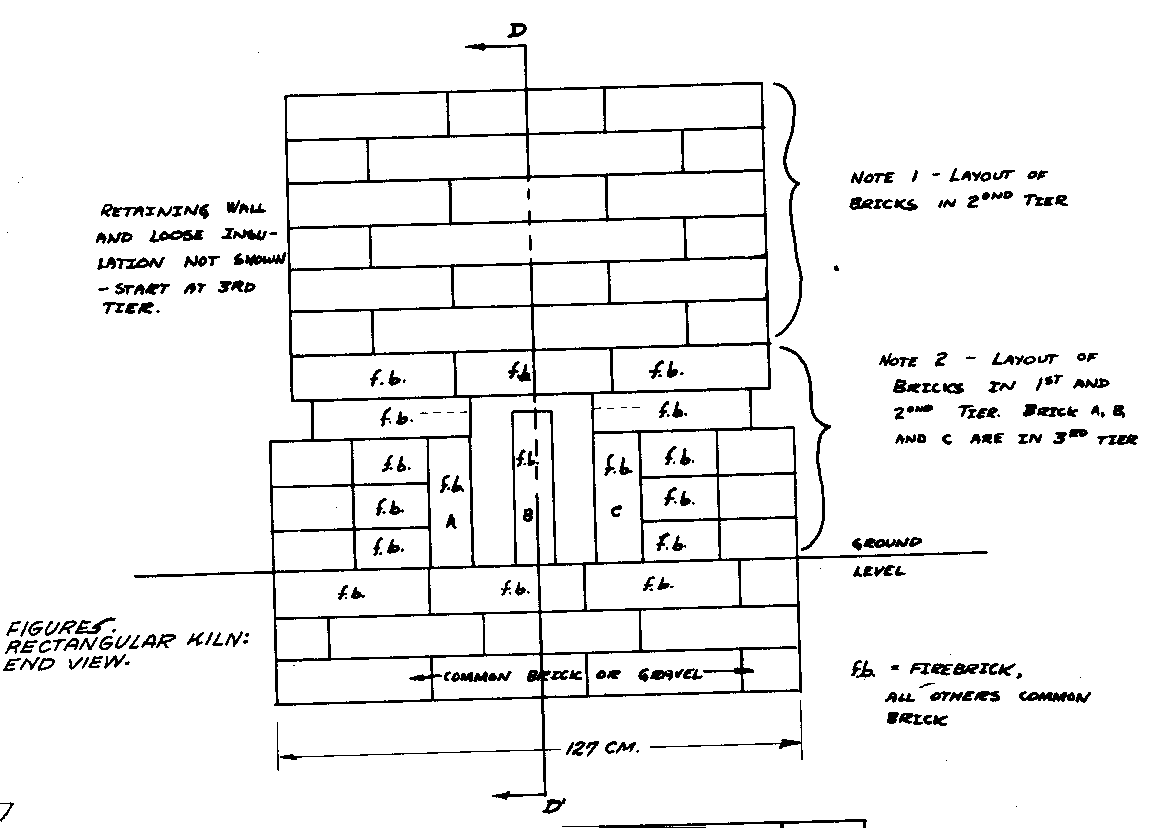 D
RETAINING WALL
AND LOOSE INSU-
LATION NOT SHOWN
- START AT 3RD
TIER.
NOTE 1 - LAYOUT OF
BRICKS IN 2OND TIER
NOTE 2 - LAYOUT OF
BRICKS IN 1ST AND
2OND TIER. BRICK A, B,
AND C ARE IN 3RD TIER
f.b. f.b. f.b.
f.b. f.b.
f.b. f.b. f.b. f.b. f.b.
f.b. A B C f.b.
f.b. f.b.
GROUND
LEVEL
f.b. f.b. f.b.
FIGURE 5.
RECTANGULAR KILN:
END VIEW.
COMMON BRICK OR GRAVEL
f.b. = FIREBRICK,
ALL OTHERS COMMON
BRICK
127 CM.
D'